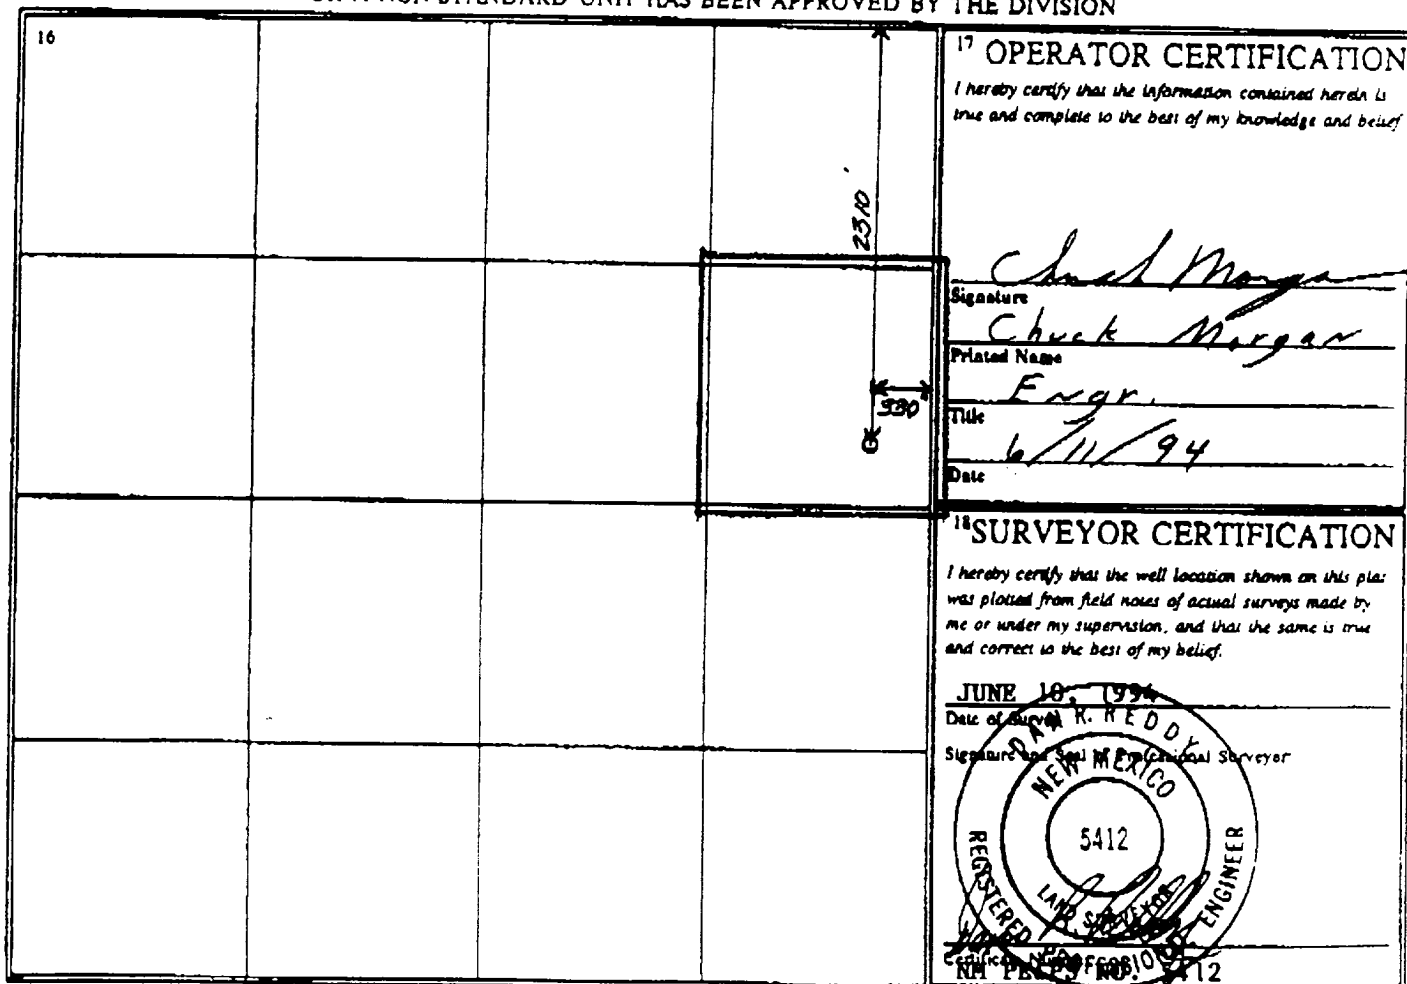 STANDARD UNIT HAS BEEN APPROVED BY THE DIVISION
16
2310'
330
17 OPERATOR CERTIFICATION
I hereby certify that the information contained herein is
true and complete to the best of my knowledge and belief
Chuck Morgan
Signature
Chuck Morgan
Printed Name
Engr.
Title
6/11/94
Date
18 SURVEYOR CERTIFICATION
I hereby certify that the well location shown on this plat
was plotted from field notes of actual surveys made by
me or under my supervision, and that the same is true
and correct to the best of my belief.
JUNE 10, 1994
Date of Survey
Signature and Seal of Professional Surveyor
DAN R. REDDY
NEW MEXICO
5412
LAND SURVEYOR
REGISTERED PROFESSIONAL ENGINEER
NM PE&PS NO. 5412